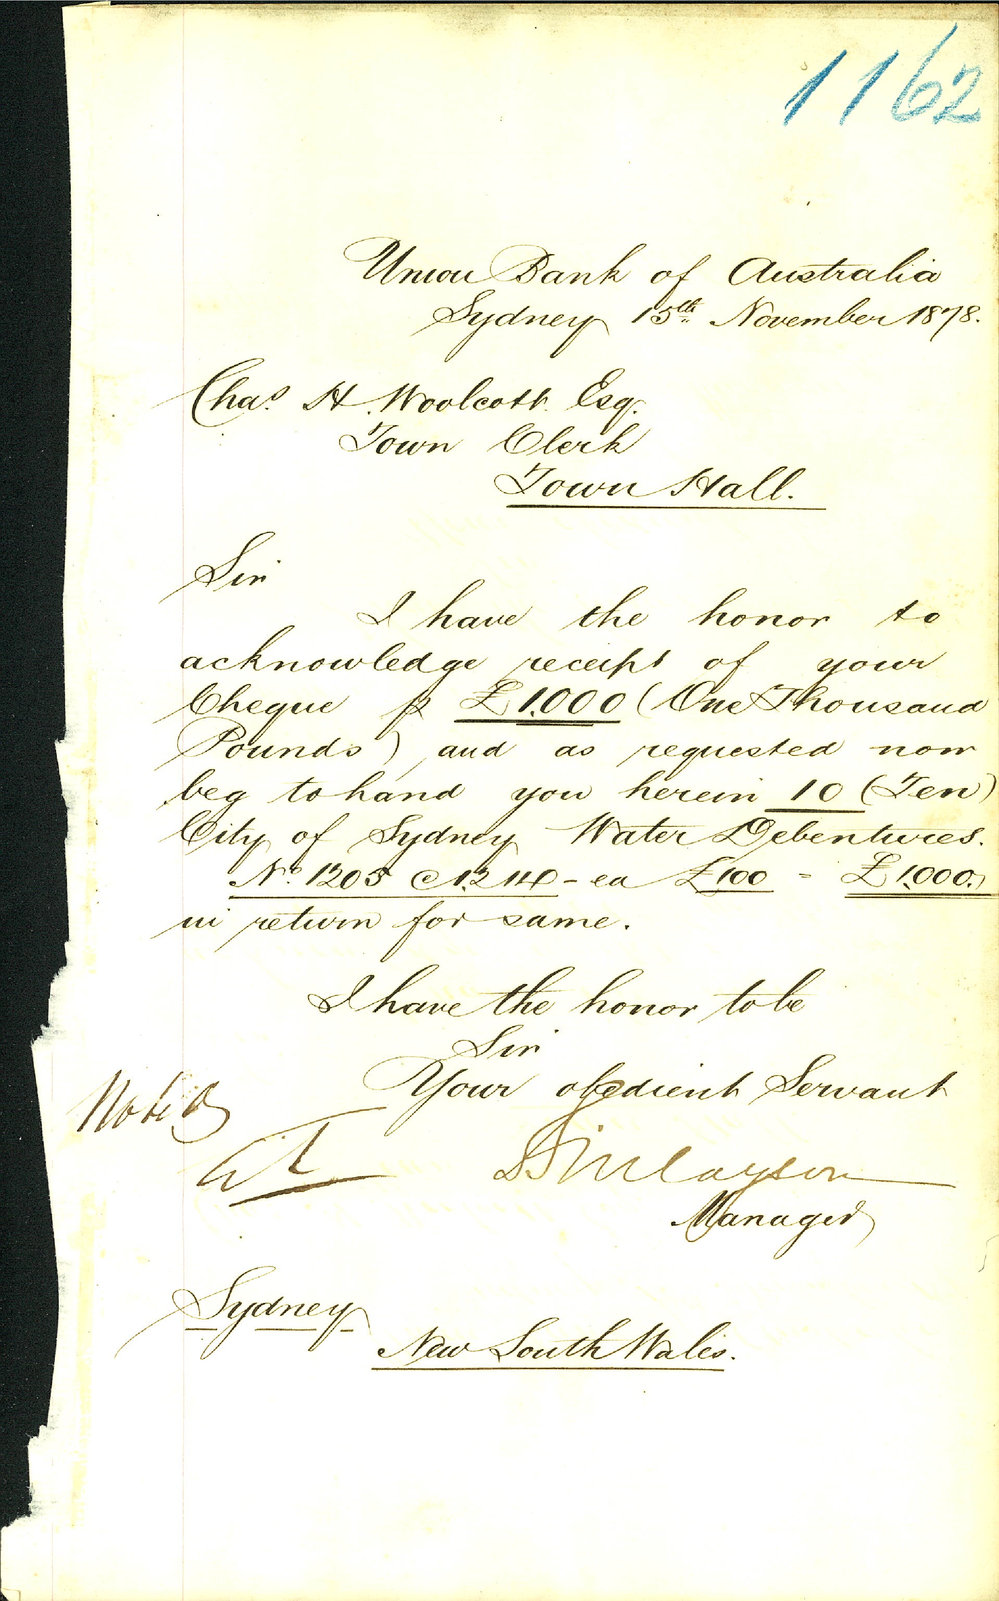 1162
Union Bank of Australia
Sydney 15th November 1878.
Chas. H. Woolcott. Esq.
Town Clerk
Town Hall.
Sir
I have the honor to
acknowledge receipt of your
Cheque p £1.000 (One Thousand
Pounds) and as requested now
beg to hand you herein 10 (Ten)
City of Sydney Water Debentures.
No. 1205 @ 1214 - ea £100 = £1.000.
in return for same.
I have the honor to be
Sir
Your obedient Servant
Finlayson
Manager
Noted
Sydney
New South Wales.